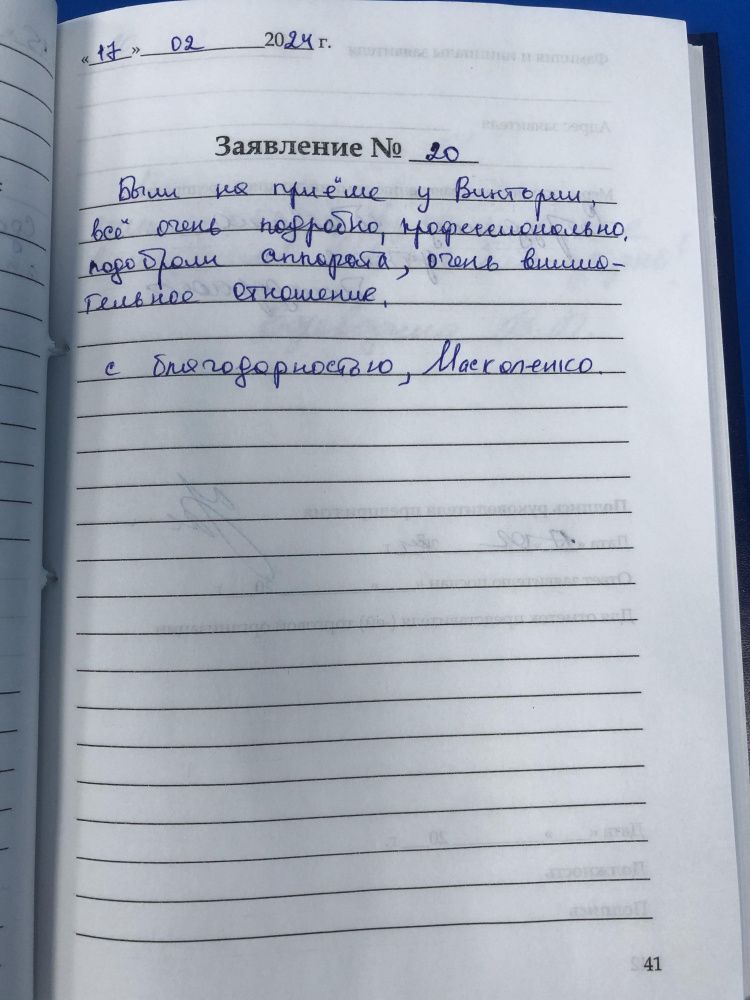 «17» 02 2024 г.
Заявление № 20
Были на приёме у Виктории,
всё очень подробно, профессионально.
подобрали аппарата, очень внима-
тельное отношение.
с благодарностью, Масколенко.
41